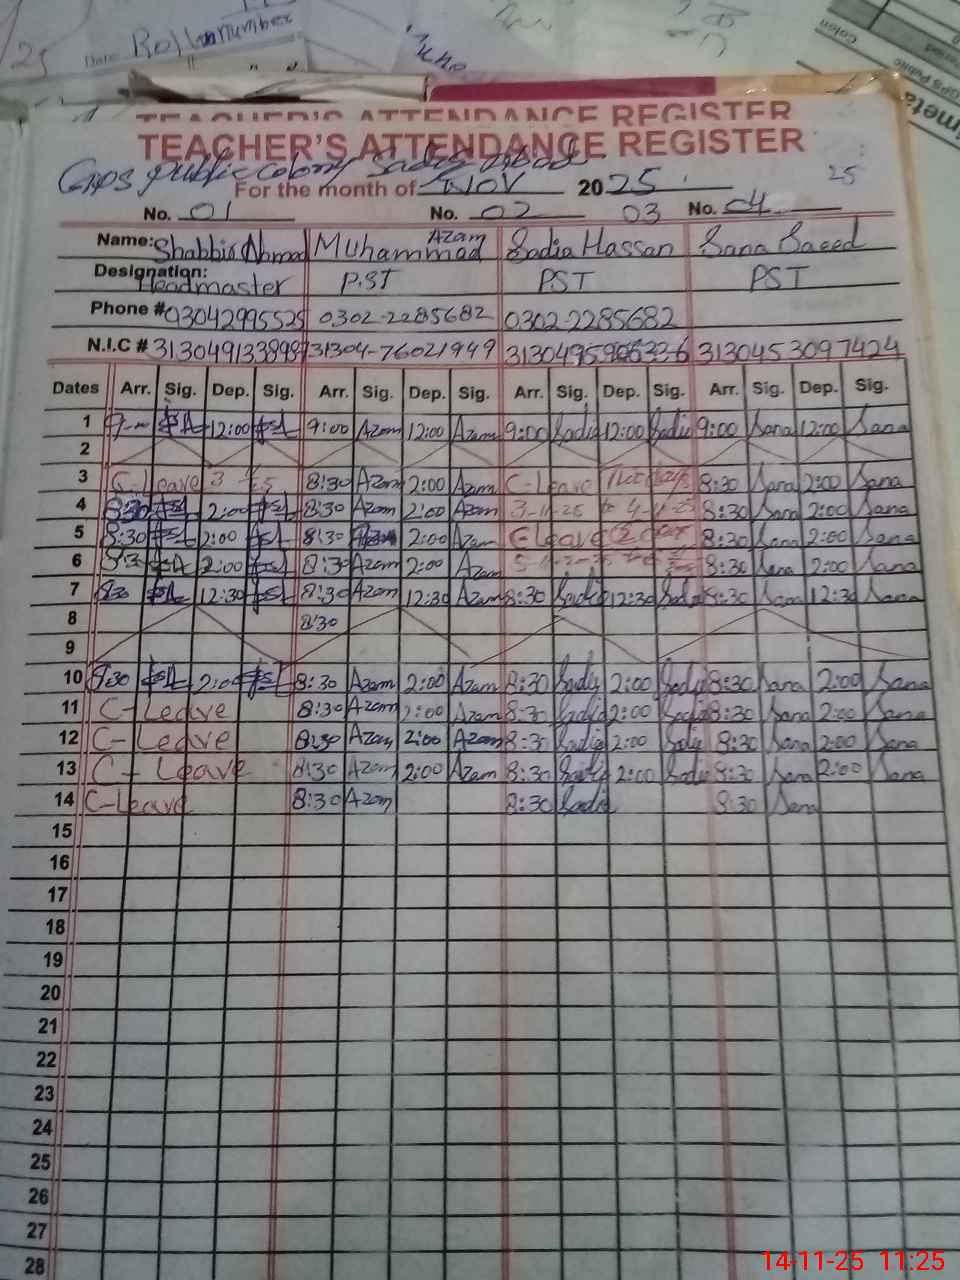 25
Date Roll number
Colon
GPS Public
TEACHER'S ATTENDANCE REGISTER
TEACHER'S ATTENDANCE REGISTER
Gps public colony
For the month of Nov 2025
25
No. 01 No. 02 03 No. 04
Name: Shabbir Ahmad Muhammad Azam Sadia Hassan Sana Saeed
Designation: Headmaster P.ST PST PST
Phone # 03042995525 0302-2285682 0302-2285682
N.I.C # 31304-76021949 3130453097424
Dates Arr. Sig. Dep. Sig. Arr. Sig. Dep. Sig. Arr. Sig. Dep. Sig. Arr. Sig. Dep. Sig.
1 12:00 9:00 Azam 12:00 Azam 9:00 Sadia 12:00 Sadia 9:00 Sana 12:00 Sana
2
3 C-Leave 8:30 Azam 2:00 Azam C-Leave 8:30 Sana 2:00 Sana
4 8:30 2:00 8:30 Azam 2:00 Azam 3-11-25 to 4-11-25 8:30 Sana 2:00 Sana
5 8:30 2:00 8:30 2:00 Azam C-Leave 8:30 Sana 2:00 Sana
6 2:00 8:30 Azam 2:00 Azam 8:30 Sana 2:00 Sana
7 8:30 12:30 8:30 Azam 12:30 Azam 8:30 Sadia 12:30 Sadia 8:30 Sana 12:30 Sana
8 8:30
9
10 8:30 2:00 8:30 Azam 2:00 Azam 8:30 Sadia 2:00 Sadia 8:30 Sana 2:00 Sana
11 C-Leave 8:30 Azam 2:00 Azam 8:30 Sadia 2:00 Sadia 8:30 Sana 2:00 Sana
12 C-Leave 8:30 Azam 2:00 Azam 8:30 Sadia 2:00 Sadia 8:30 Sana 2:00 Sana
13 C-Leave 8:30 Azam 2:00 Azam 8:30 Sadia 2:00 Sadia 8:30 Sana 2:00 Sana
14 C-Leave 8:30 Azam 8:30 Sadia 8:30 Sana
15
16
17
18
19
20
21
22
23
24
25
26
27
28
14-11-25 11:25